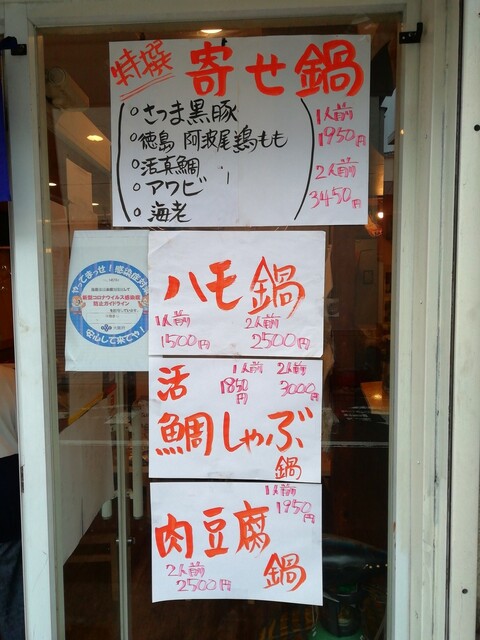 特撰 寄せ鍋
○さつま黒豚
○徳島 阿波尾鶏もも
○活真鯛
○アワビ
○海老
1人前
1950円
2人前
3450円
やってまっせ!感染症対策
新型コロナウイルス感染症
防止ガイドライン
安心して来てや!
ハモ鍋
1人前 2人前
1500円 2500円
活 1人前 2人前
1850円 3000円
鯛しゃぶ
鍋
1人前
1950円
肉豆腐
鍋
2人前
2500円